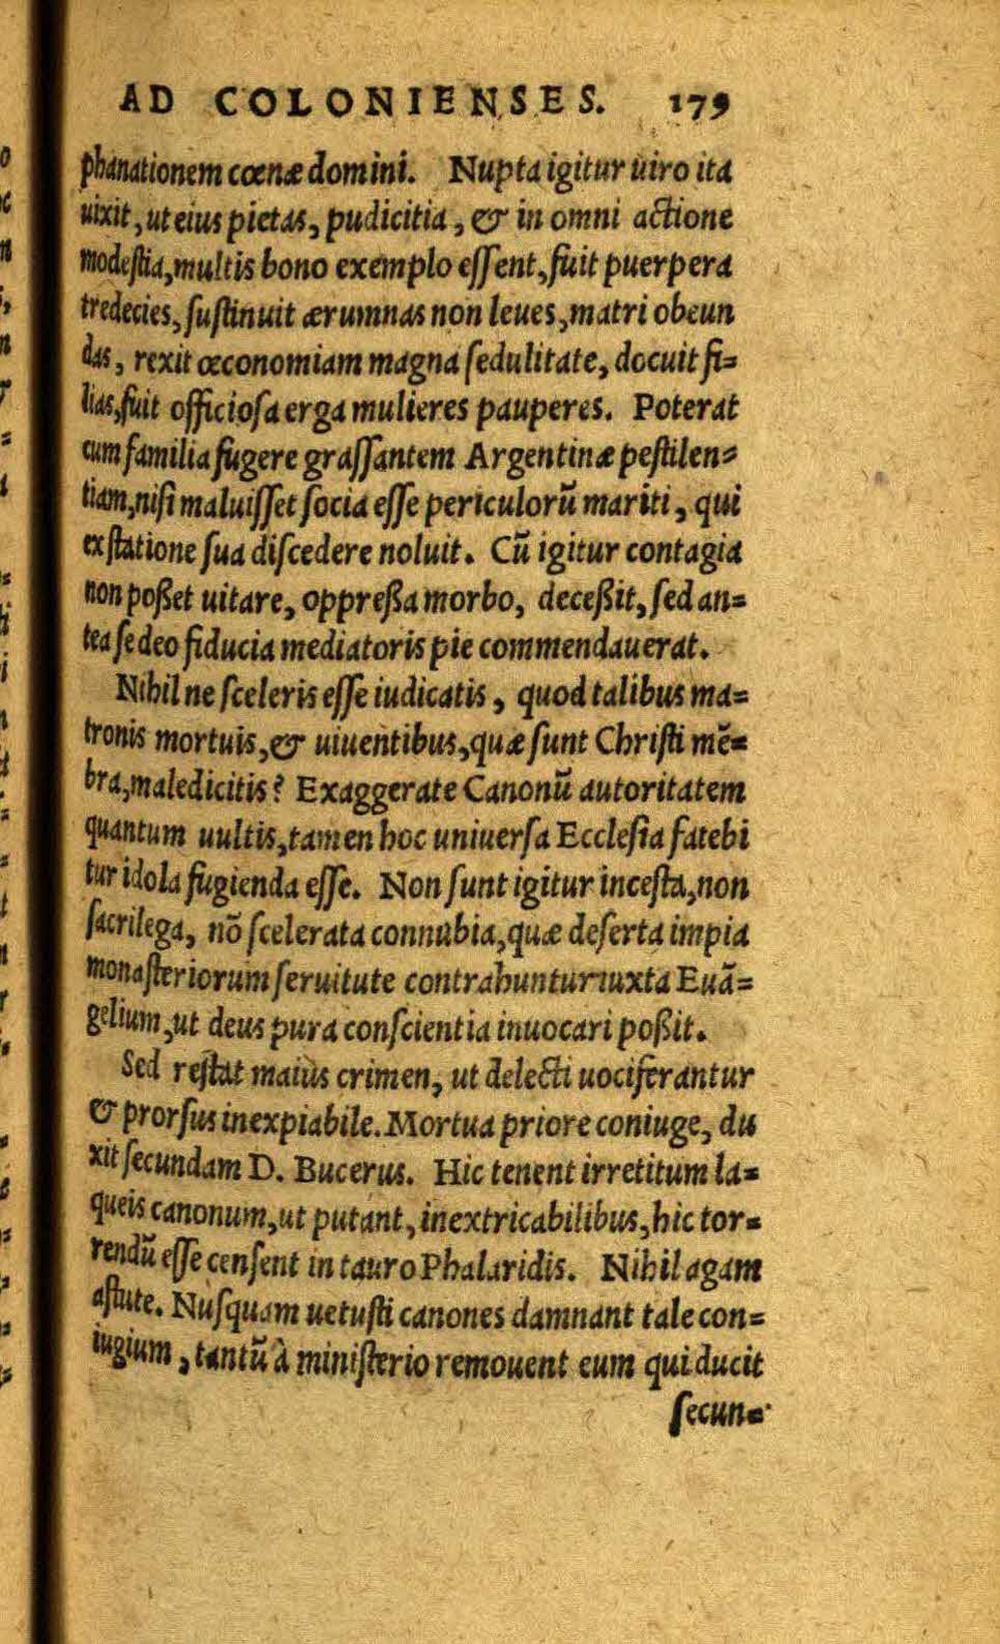 AD COLONIENSES. 179
phanationem cœnæ domini. Nupta igitur uiro ita
uixit, ut eius pietas, pudicitia, & in omni actione
modeſtia, multis bono exemplo eſſent, fuit puerpera
tredecies, ſuſtinuit ærumnas non leues, matri obeun
das, rexit œconomiam magna ſedulitate, docuit fi=
lias, fuit officioſa erga mulieres pauperes. Poterat
cum familia fugere graſſantem Argentinæ peſtilen=
tiam, niſi maluiſſet ſocia eſſe periculorũ mariti, qui
ex ſtatione ſua diſcedere noluit. Cũ igitur contagia
non poßet uitare, oppreßa morbo, deceßit, ſed an=
tea ſe deo fiducia mediatoris pie commendauerat.
Nihil ne ſceleris eſſe iudicatis, quod talibus ma=
tronis mortuis, & uiuentibus, quæ ſunt Chriſti mẽ=
bra, maledicitis? Exaggerate Canonũ autoritatem
quantum uultis, tamen hoc uniuerſa Eccleſia fatebi
tur idola fugienda eſſe. Non ſunt igitur inceſta, non
ſacrilega, nõ ſcelerata connubia, quæ deſerta impia
monaſteriorum ſeruitute contrahuntur iuxta Euã=
gelium, ut deus pura conſcientia inuocari poßit.
Sed reſtat maius crimen, ut delecti uociferantur
& prorſus inexpiabile. Mortua priore coniuge, du
xit ſecundam D. Bucerus. Hic tenent irretitum la=
queis canonum, ut putant, inextricabilibus, hic tor=
rendũ eſſe cenſent in tauro Phalaridis. Nihil agam
aſtute. Nuſquam uetuſti canones damnant tale con=
iugium, tantũ à miniſterio remouent eum qui ducit
ſecun=